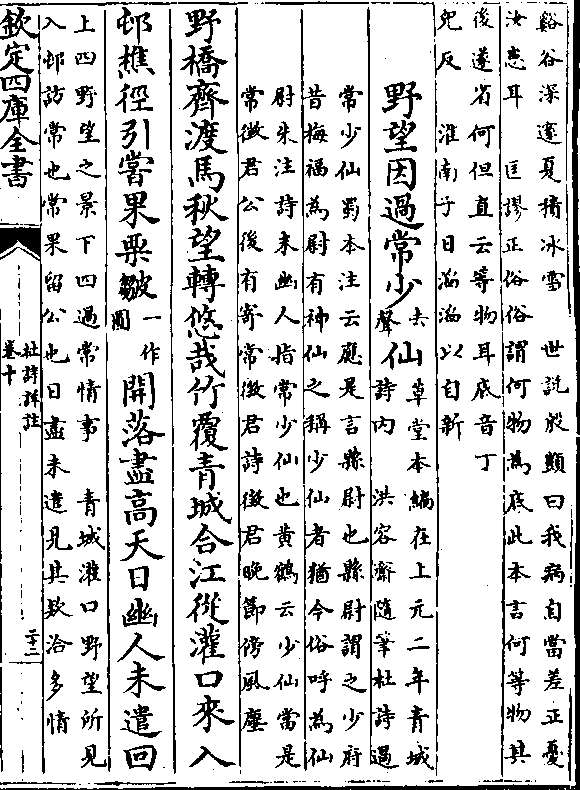 谿谷深邃夏積冰雪　世説殷顗曰我病自當差正憂
汝患耳　匡謬正俗俗謂何物為底此本言何等物其
後遂省何但直云等物耳底音丁
兒反　淮南子曰淄淄以自新
野望因過常少去聲仙草堂本編在上元二年青城
詩内　洪容齋隨筆杜詩過
常少仙蜀本注云應是言縣尉也縣尉謂之少府
昔梅福為尉有神仙之稱少仙者猶今俗呼為仙
尉朱注詩末幽人指常少仙也黄鶴云少仙當是
常徴君公後有寄常徴君詩徴君晚節傍風塵
野橋齊渡馬秋望轉悠哉竹覆青城合江從灌口來入
邨樵徑引嘗果栗皺一作圓開落盡高天日幽人未遣回
上四野望之景下四過常情事　青城灌口野望所見
入邨訪常也常果留公也日盡未遣見其欵洽多情
欽定四庫全書
杜詩詳註
卷十
二十二